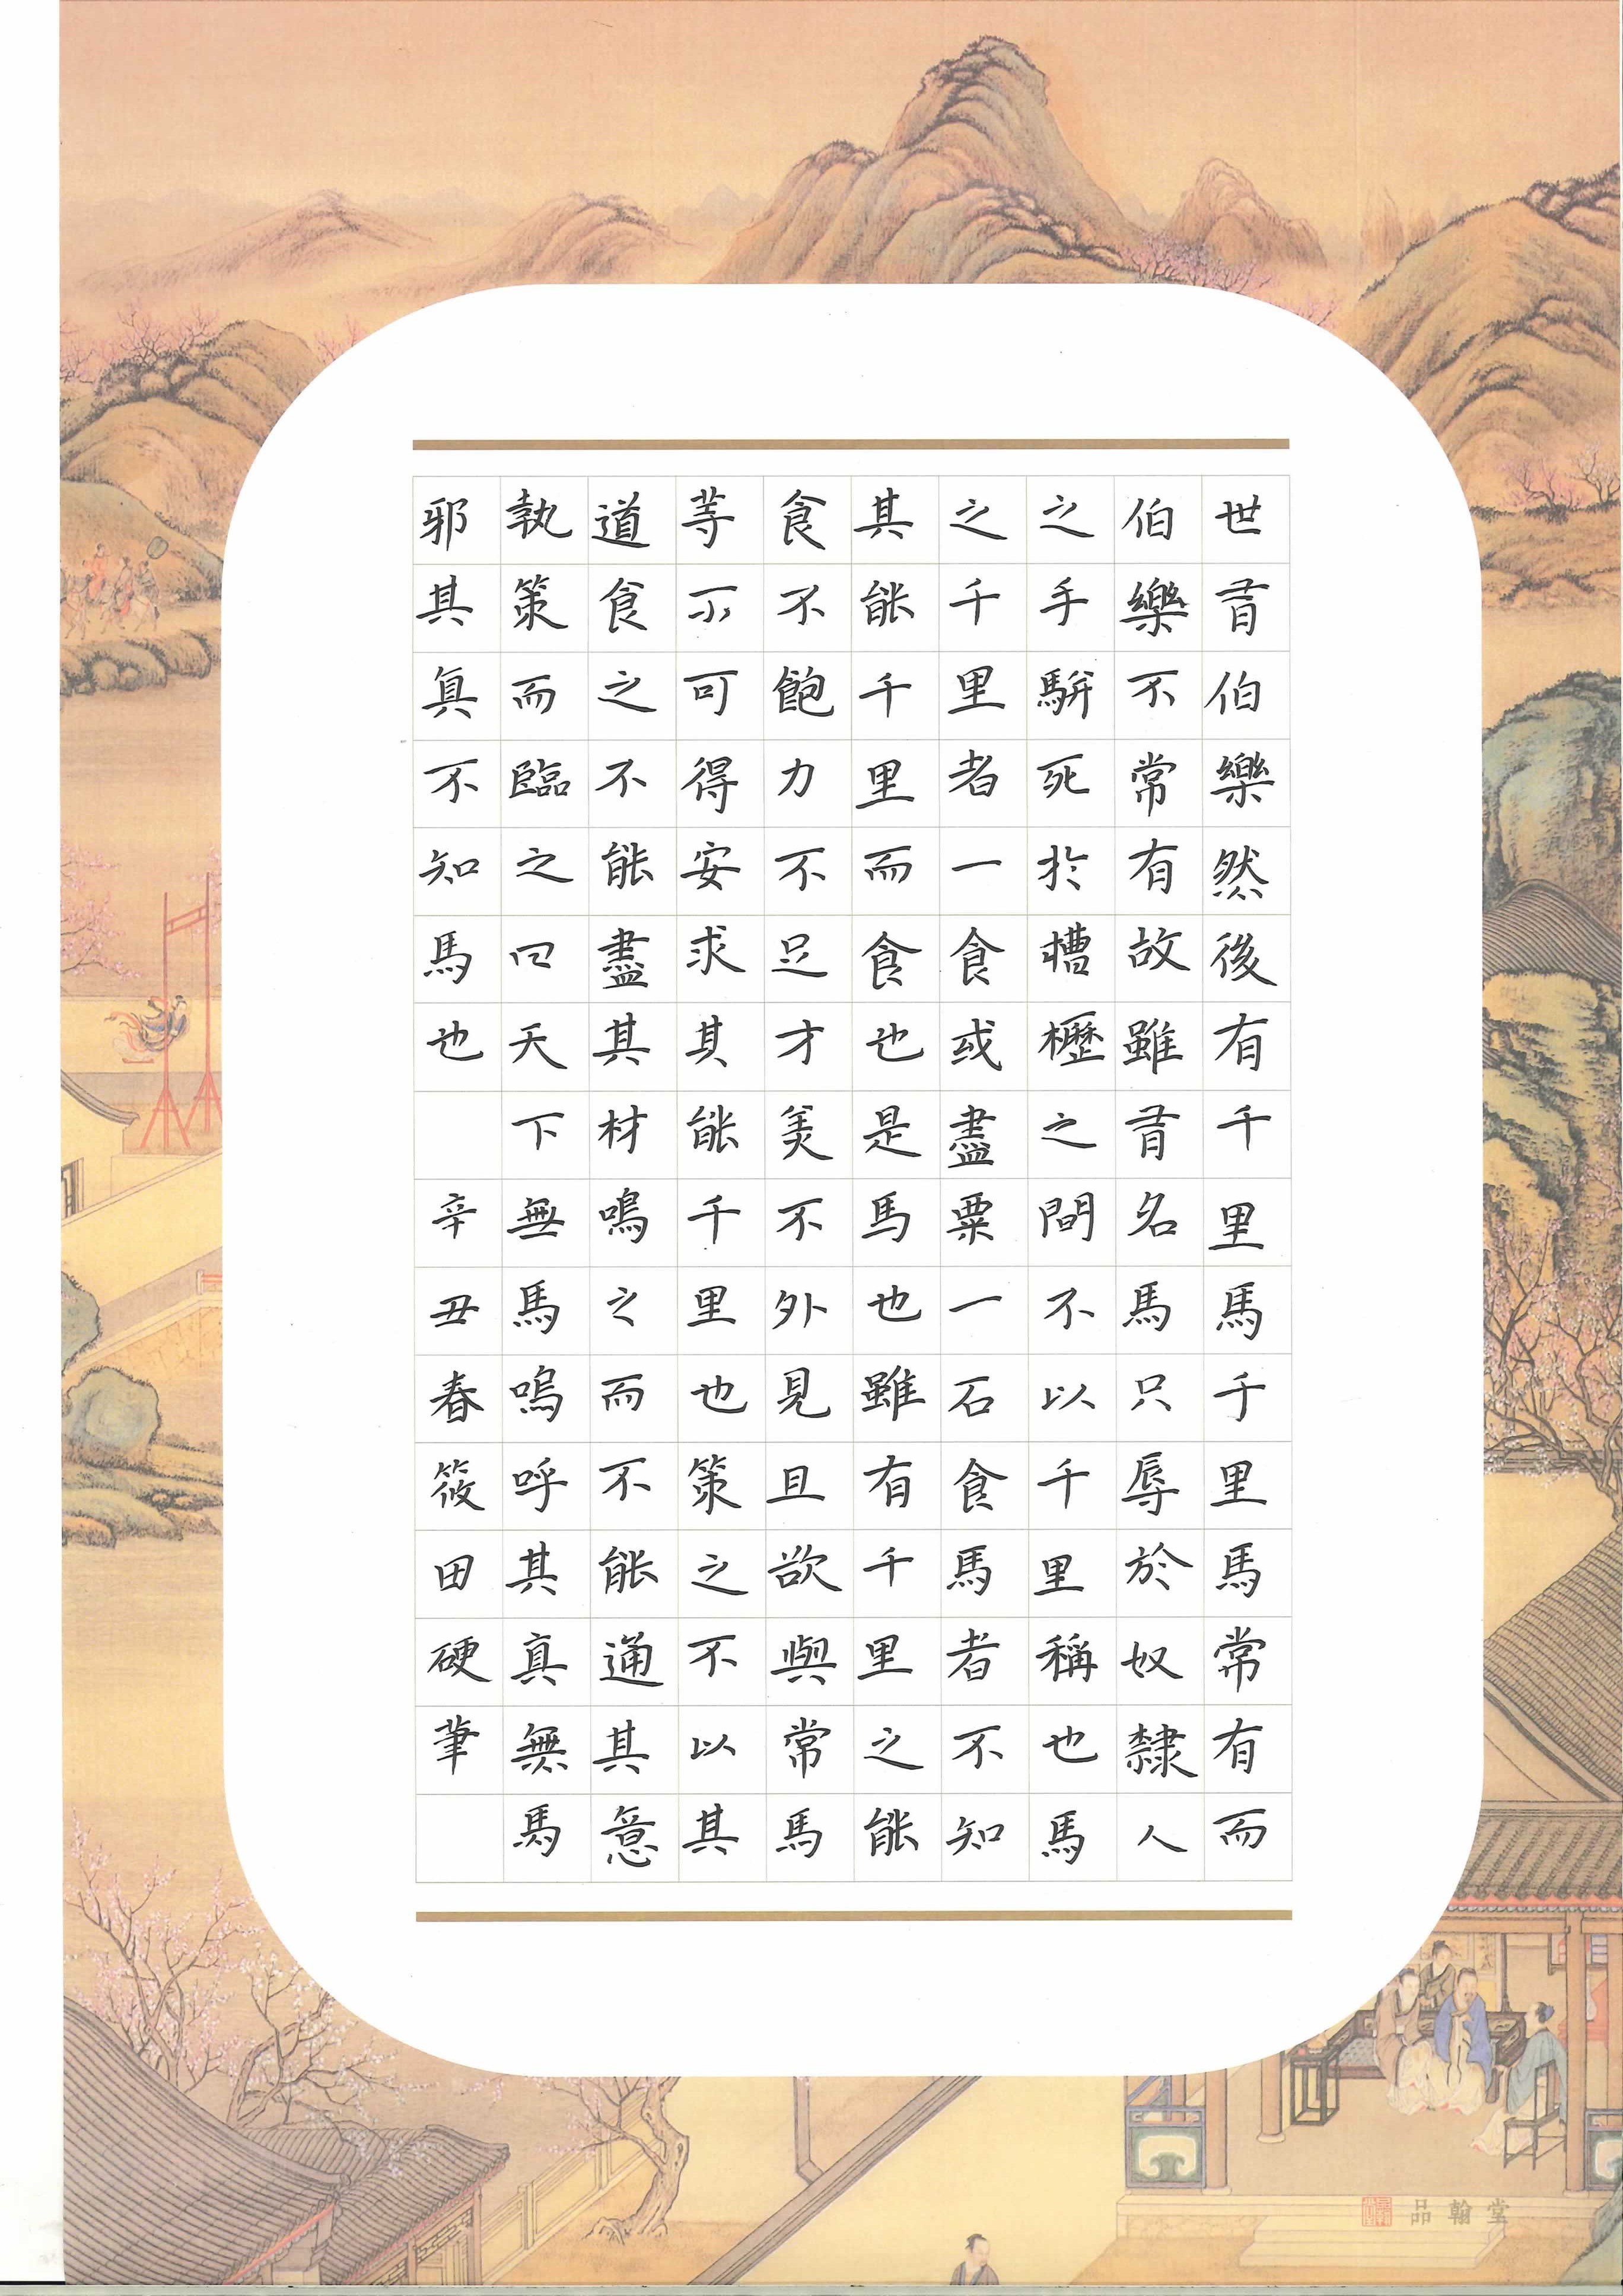 世有伯樂然後有千里馬千里馬常有而
伯樂不常有故雖有名馬只辱於奴隸人
之手駢死於槽櫪之間不以千里稱也馬
之千里者一食或盡粟一石食馬者不知
其能千里而食也是馬也雖有千里之能
食不飽力不足才美不外見且欲與常馬
等不可得安求其能千里也策之不以其
道食之不能盡其材鳴之而不能通其意
執策而臨之曰天下無馬嗚呼其真無馬
邪其真不知馬也 辛丑春筱田硬筆
品翰堂